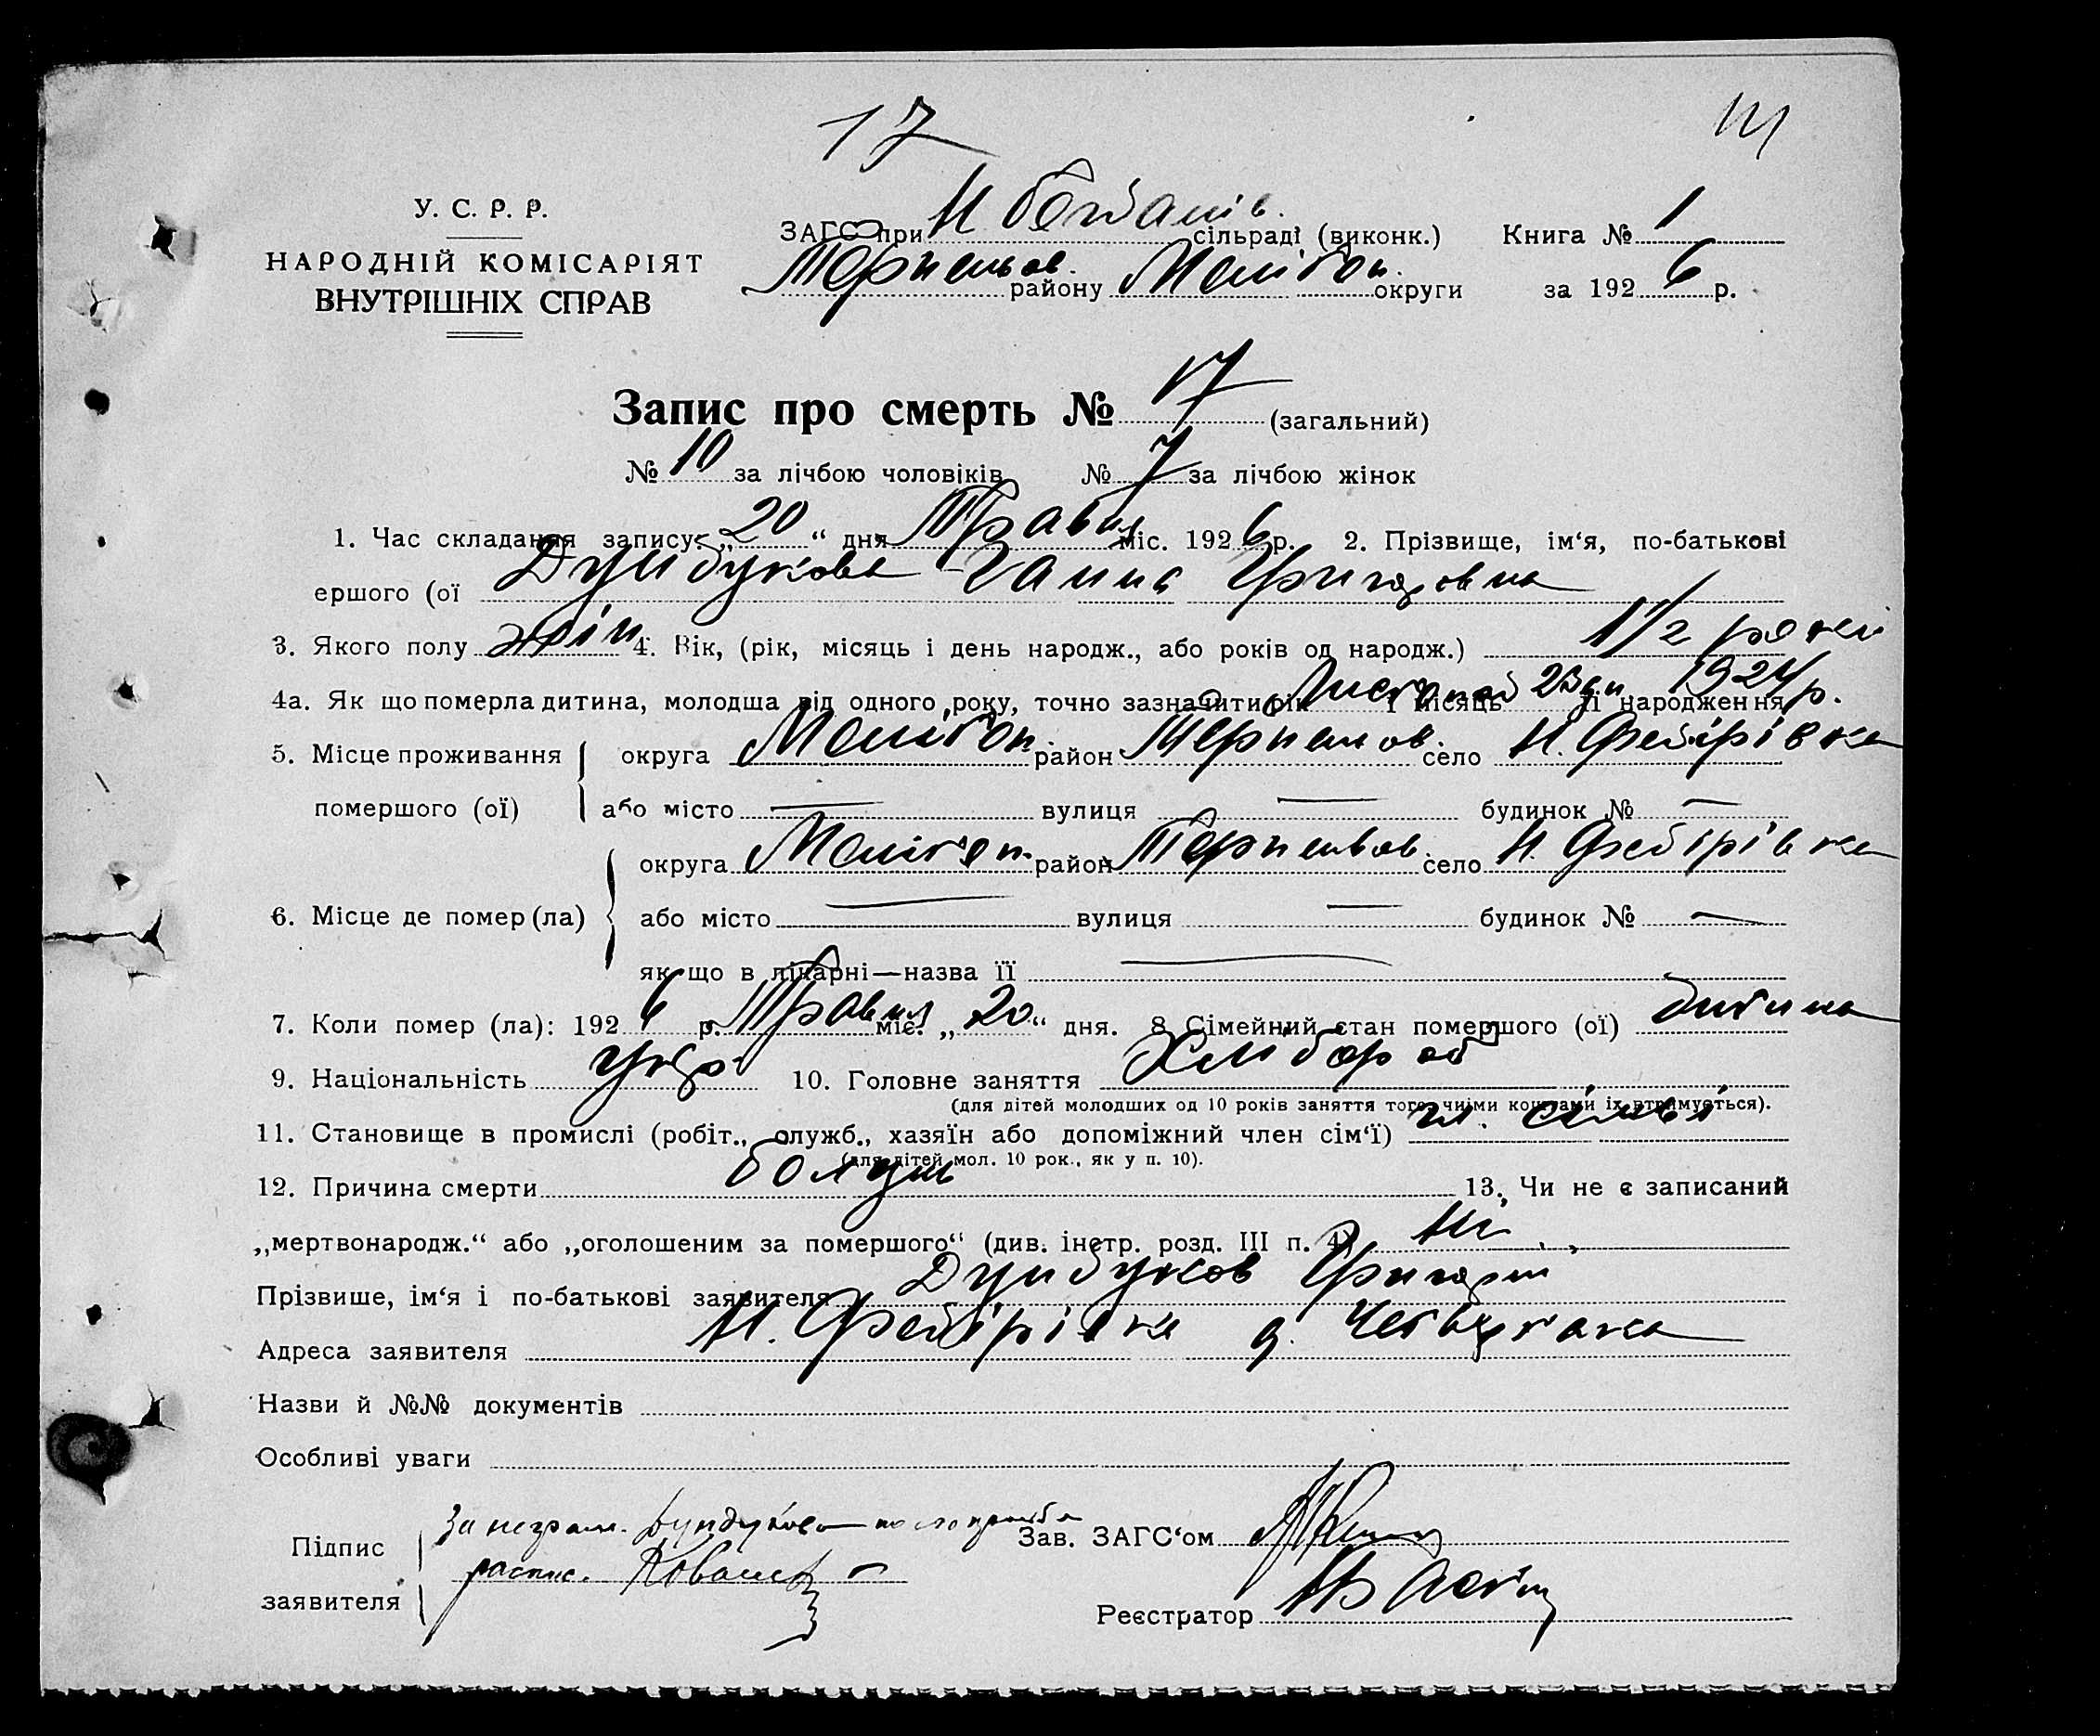 17
У. С. Р. Р.
НАРОДНІЙ КОМІСАРІЯТ
ВНУТРІШНІХ СПРАВ
ЗАГС при Н. Богданів. сільраді (виконк.) Книга № 1
Терпеньов. району Мелітоп. округи за 1926 р.
Запис про смерть № 17 (загальний)
№ 10 за лічбою чоловіків № 7 за лічбою жінок
1. Час складання запису: „20“ дня Травня міс. 1926 р. 2. Прізвище, ім‘я, по-батькові
ершого (ої Дундукова Ганна Григоровна
3. Якого полу жін. 4. Вік, (рік, місяць і день народж., або років од народж.) 1 1/2 роки
4а. Як що померла дитина, молодша від одного року, точно зазначити рік і місяць її народження Листопад 23 дн. 1924 р.
5. Місце проживання помершого (ої) округа Мелітоп. район Терпеньов. село Н. Федірівка
або місто — вулиця — будинок № —
6. Місце де помер (ла) округа Мелітоп. район Терпеньов. село Н. Федірівка
або місто — вулиця — будинок № —
як що в лікарні—назва її —
7. Коли помер (ла): 1926 р. Травня міс. „20“ дня. 8. Сімейний стан помершого (ої) дитина
9. Національність укр. 10. Головне заняття Хлібороб
(для дітей молодших од 10 років заняття того, чиїми коштами їх втримується).
11. Становище в промислі (робіт., служб., хазяїн або допоміжний член сім‘ї) чл. сімьї
(для дітей мол. 10 рок., як у п. 10).
12. Причина смерти 13. Чи не є записаний
„мертвонародж.“ або „оголошеним за помершого“ (див. інстр. розд. III п. 4) Ні
Прізвише, ім‘я і по-батькові заявителя Дундуков Григорій
Адреса заявителя Н. Федірівка
Назви й №№ документів
Особливі уваги
Підпис заявителя За неграм. Дундукова по его просьбе
распис. Зав. ЗАГС‘ом
Реєстратор